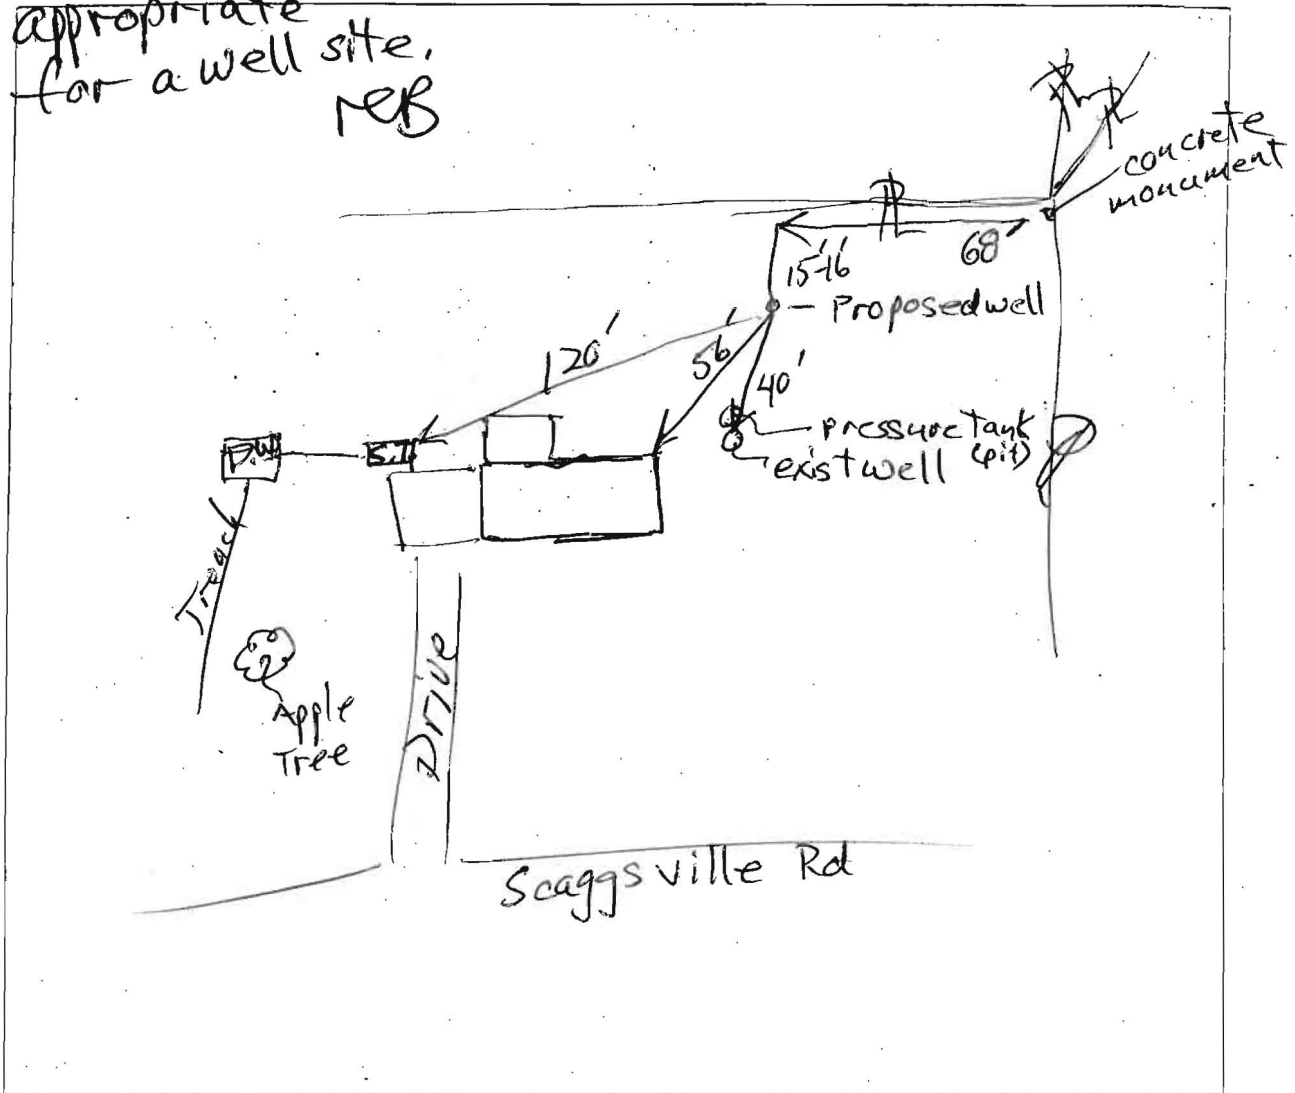 appropriate
for a well site.
MB
PL
PL
concrete
monument
PL
68'
15'-16'
Proposed well
120'
56'
40'
pressure Tank
(pit)
exist well
D.W
S.T
Trench
Apple
Tree
Drive
Scaggsville Rd